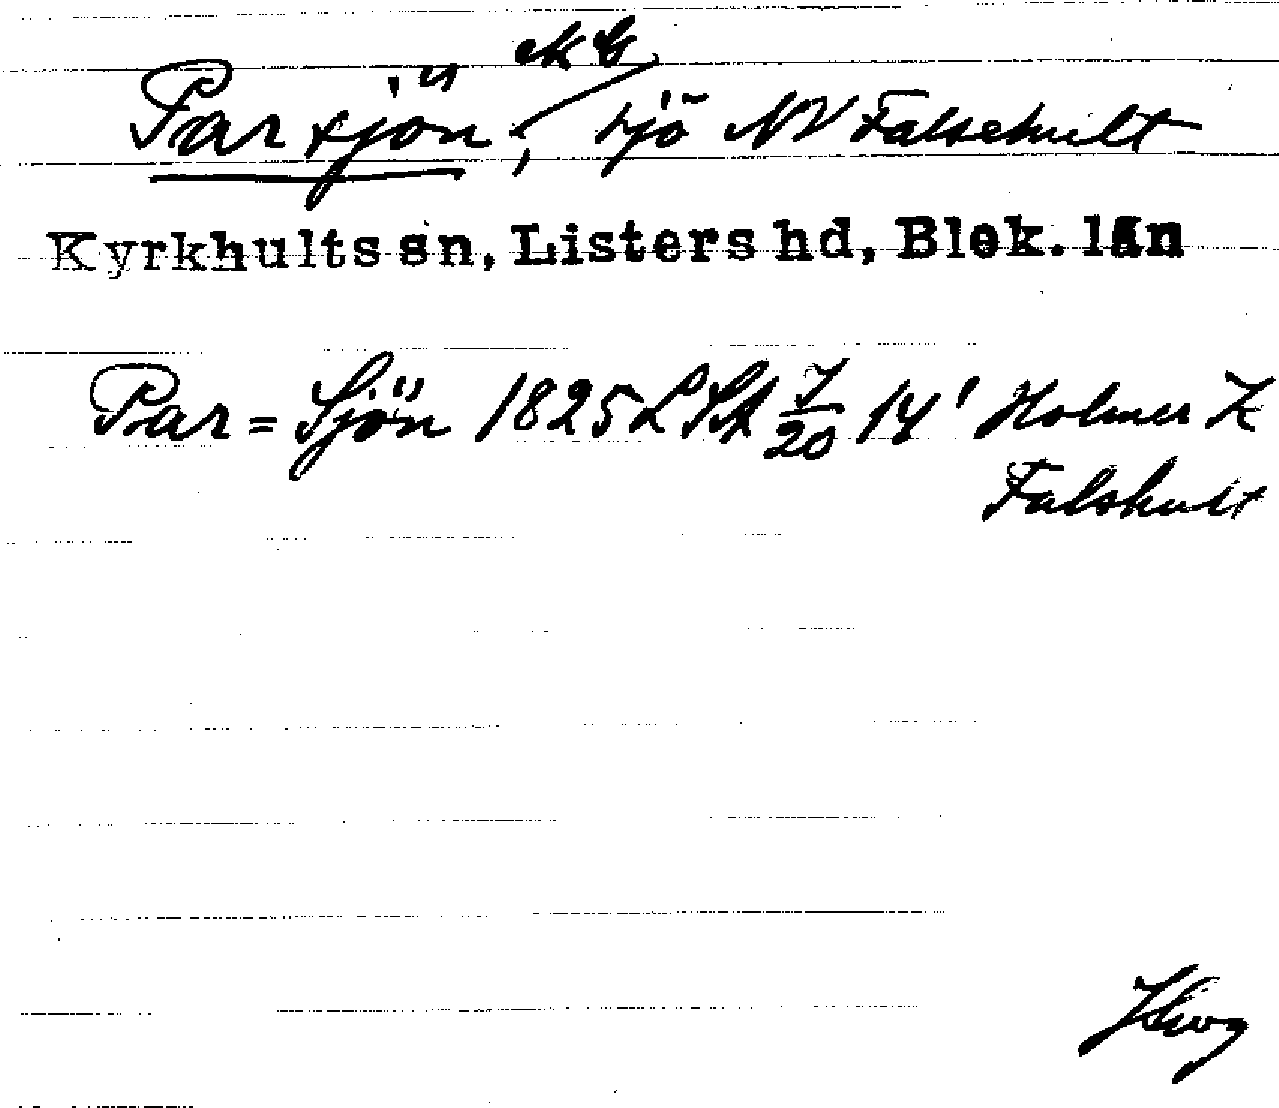 Parsjön, sjö NV Falsehult
Kyrkhults sn, Listers hd, Blek. län
Par=Sjön 1825 LSA 7/20 14' Holmer Z
Falshult